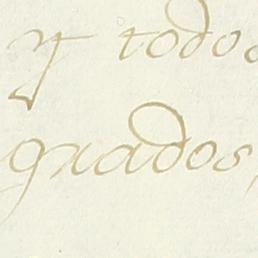 y todos
grados,